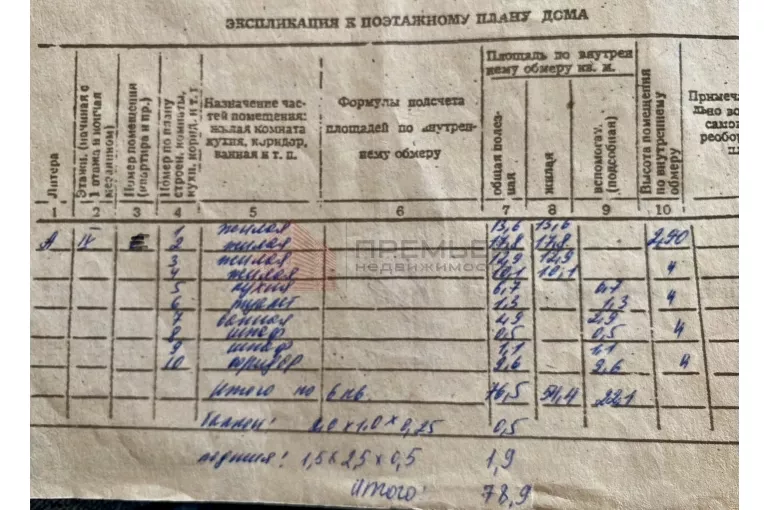 ЭКСПЛИКАЦИЯ К ПОЭТАЖНОМУ ПЛАНУ ДОМА
Литера
Этажи, (начиная с 1 этажа и кончая мезанином)
Номер помещения (квартира и пр.)
Номер по плану строен, комнаты, кухн, корид, и т.
Назначение частей помещения: жилая комната кухня, коридор, ванная и т. п.
Формулы подсчета площадей по внутреннему обмеру
Площадь по внутреннему обмеру кв. м.
общая полезная
жилая
вспомогат. (подсобная)
Высота помещения по внутреннему обмеру
Примеча
льно во
само
реобор
1 2 3 4 5 6 7 8 9 10
1 жилая 13,6 13,6
А IV 2 жилая 17,8 17,8 2,90
3 жилая 12,9 12,9
4 жилая 10,1 10,1 ч
5 кухня 6,7 6,7
6 туалет 1,3 1,3 ч
7 ванная 2,9 2,9
8 шкаф 0,5 0,5 ч
9 шкаф 1,1 1,1
10 коридор 9,6 9,6 ч
Итого по 6 кв. 76,5 54,4 22,1
балкон: 2.0 х 1.0 х 0,25 0,5
лоджия: 1,5 х 2,5 х 0,5 1,9
Итого: 78,9
ПРЕМЬЕ
недвижимос